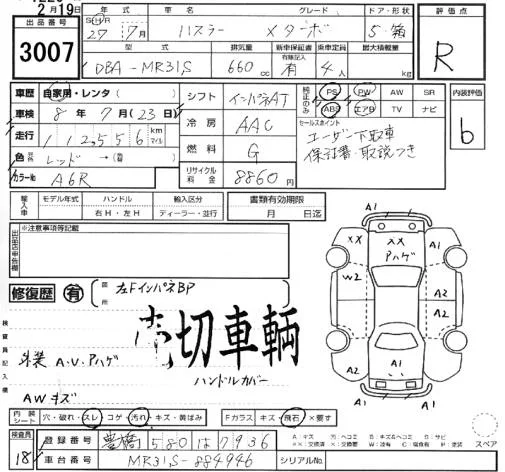 2月19日
出品番号
3007
年式 グレード ドア・形状
S H R 27年 7月 ハスラー Xターボ 5 箱
型式 排気量 新車保証書 乗車定員 最大積載量
DBA-MR31S 660cc 有 4人 kg
評価点
R
車歴 自家用・レンタ( )
車検 8年 7月(23日)
走行 112556 km マイル
色 元色 レッド→(替 )
カラーNo A6R
シフト インパネAT
冷房 AAC
燃料 G
リサイクル料金 8860円
純正品のみ PS PW AW SR
ABS エアB TV ナビ
セールスポイント
ユーザー下取車
保証書・取説つき
内装評価
b
輸入車 モデル年式 ハンドル 輸入区分
年 右H・左H ディーラー・並行
書類有効期限
月 日迄
出品店申告欄
※注意事項等記載
修復歴 有
箇所
左FインパネBP
切車輌
検査員記入欄
外装 A・U・Pハゲ
ハンドルカバー
AWキズ
内装シート 穴・破れ・スレ コゲ・汚れ・キズ・黄ばみ
Fガラス キズ・飛石・×要す
検査員
18
登録番号 豊橋 580 は 7936
車台番号 MR31S-884946
シリアルNo.
A1
XX
XX
Pハゲ
A1
W2
A2
A2
A2
A1
A1
A1
スペア